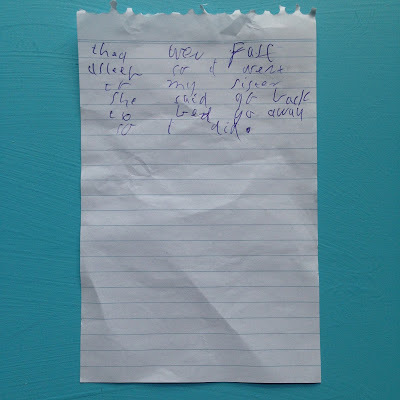 they wer fast
asleep so I went
to my sister
she said go back
to bed go away
so I did.